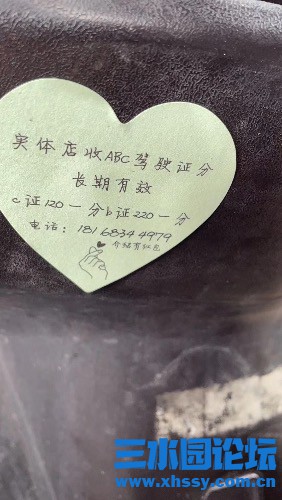 实体店收ABC驾驶证分
长期有效
c证120一分b证220一分
电话：18168344979
介绍有红包
三水园论坛
www.xhssy.com.cn